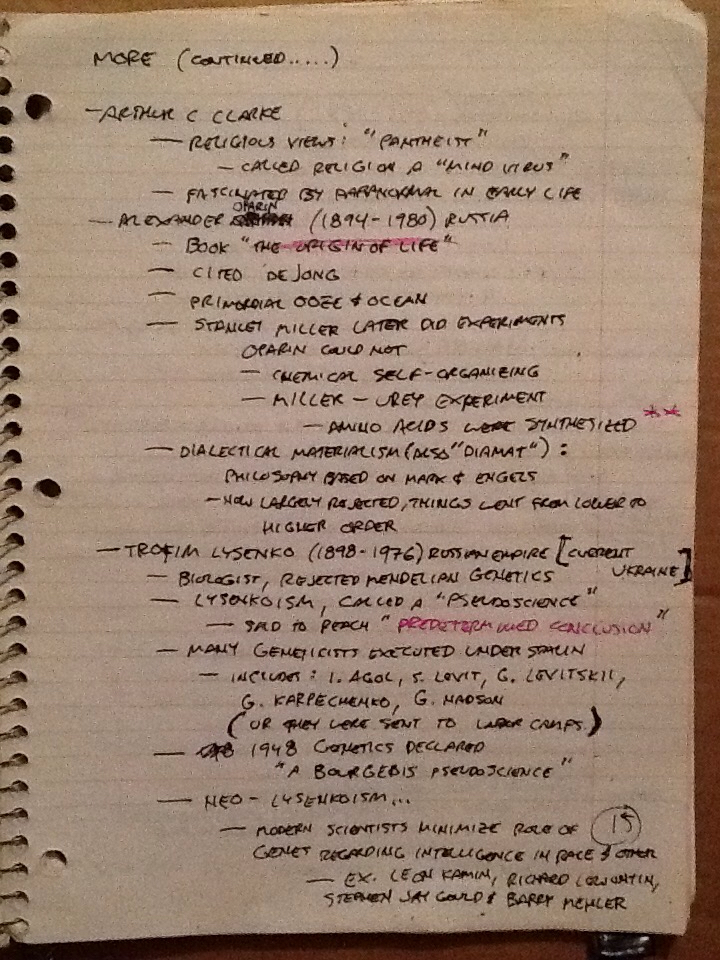 MORE (CONTINUED.....)
— ARTHUR C CLARKE
— RELIGIOUS VIEWS: "PANTHEIST"
— CALLED RELIGION A "MIND VIRUS"
— FASCINATED BY PARANORMAL IN EARLY LIFE
— ALEXANDER OPARIN (1894-1980) RUSSIA
— BOOK "THE ORIGIN OF LIFE"
— CITED DE JONG
— PRIMORDIAL OOZE & OCEAN
— STANLEY MILLER LATER DID EXPERIMENTS
OPARIN COULD NOT
— CHEMICAL SELF-ORGANIZING
— MILLER - UREY EXPERIMENT
— AMINO ACIDS WERE SYNTHESIZED **
— DIALECTICAL MATERIALISM (ALSO "DIAMAT") :
PHILOSOPHY BASED ON MARX & ENGELS
— NOW LARGELY REJECTED, THINGS WENT FROM LOWER TO
HIGHER ORDER
— TROFIM LYSENKO (1898-1976) RUSSIAN EMPIRE [CURRENT
UKRAINE]
— BIOLOGIST, REJECTED MENDELIAN GENETICS
— LYSENKOISM, CALLED A "PSEUDOSCIENCE"
— SAID TO REACH "PREDETERMINED CONCLUSION"
— MANY GENETICISTS EXECUTED UNDER STALIN
— INCLUDES: I. AGOL, S. LEVIT, G. LEVITSKII,
G. KARPECHENKO, G. NADSON
(OR THEY WERE SENT TO LABOR CAMPS.)
— 1948 GENETICS DECLARED
"A BOURGEOIS PSEUDOSCIENCE"
— NEO - LYSENKOISM...
— MODERN SCIENTISTS MINIMIZE ROLE OF
GENET REGARDING INTELLIGENCE IN RACE & OTHER
— EX. LEON KAMIN, RICHARD LEWONTIN,
STEPHEN JAY GOULD & BARRY MEHLER
15